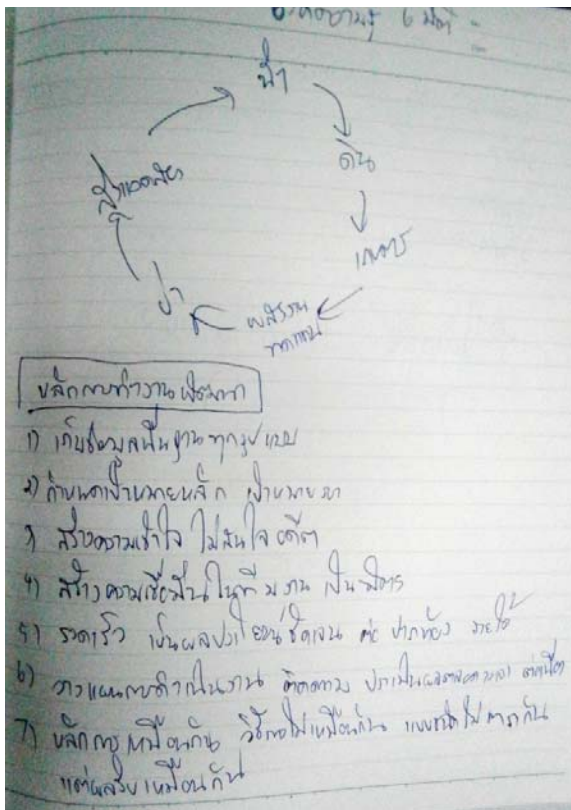 องค์ความรู้ 6 มิติ -
น้ำ
ดิน
เกษตร
พลังงาน
ทดแทน
ป่า
สิ่งแวดล้อม
หลักการทำงานพัฒนา
1) เก็บข้อมูลพื้นฐานทุกรูปแบบ
2) กำหนดเป้าหมายหลัก เป้าหมายรอง
3) สร้างความเข้าใจ ไม่สนใจอดีต
4) สร้างความเชื่อมั่นในทีมงาน เป็นมิตร
5) รวดเร็ว เห็นผลประโยชน์ชัดเจน ต่อ ปากท้อง รายได้
6) วางแผนการดำเนินงาน ติดตาม ประเมินผลตลอดเวลา ต่อเนื่อง
7) หลักการเหมือนกัน วิธีการไม่เหมือนกัน ไม่ กัน
แต่ผลรับเหมือนกัน